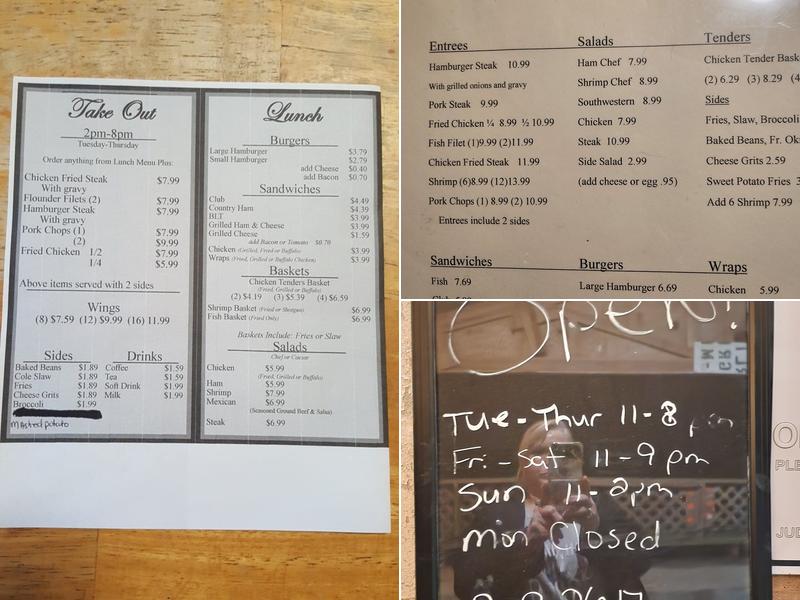 Take Out
2pm-8pm
Tuesday-Thursday
Order anything from Lunch Menu Plus:
Chicken Fried Steak $7.99
With gravy
Flounder Filets (2) $7.99
Hamburger Steak $7.99
With gravy
Pork Chops (1) $7.99
(2) $9.99
Fried Chicken 1/2 $7.99
1/4 $5.99
Above items served with 2 sides
Wings
(8) $7.59 (12) $9.99 (16) 11.99
Sides
Baked Beans $1.89
Cole Slaw $1.89
Fries $1.89
Cheese Grits $1.89
Broccoli $1.99
Mashed potato
Drinks
Coffee $1.59
Tea $1.59
Soft Drink $1.99
Milk $1.99
Lunch
Burgers
Large Hamburger $3.79
Small Hamburger $2.79
add Cheese $0.40
add Bacon $0.70
Sandwiches
Club $4.49
Country Ham $4.39
BLT $3.99
Grilled Ham & Cheese $3.99
Grilled Cheese $1.59
add Bacon or Tomato $0.70
Chicken (Grilled, Fried or Buffalo) $3.99
Wraps (Fried, Grilled or Buffalo Chicken) $3.99
Baskets
Chicken Tenders Basket
(Fried, Grilled or Buffalo)
(2) $4.19 (3) $5.39 (4) $6.59
Shrimp Basket (Fried or Shotgun) $6.99
Fish Basket (Fried Only) $6.99
Baskets Include: Fries or Slaw
Salads
Chef or Caesar
Chicken $5.99
(Fried, Grilled or Buffalo)
Ham $5.99
Shrimp $7.99
Mexican $6.99
(Seasoned Ground Beef & Salsa)
Steak $6.99
Entrees
Hamburger Steak 10.99
With grilled onions and gravy
Pork Steak 9.99
Fried Chicken ¼ 8.99 ½ 10.99
Fish Filet (1)9.99 (2)11.99
Chicken Fried Steak 11.99
Shrimp (6)8.99 (12)13.99
Pork Chops (1) 8.99 (2) 10.99
Entrees include 2 sides
Salads
Ham Chef 7.99
Shrimp Chef 8.99
Southwestern 8.99
Chicken 7.99
Steak 10.99
Side Salad 2.99
(add cheese or egg .95)
Tenders
Chicken Tender Bask
(2) 6.29 (3) 8.29 (4
Sides
Fries, Slaw, Broccoli
Baked Beans, Fr. Ok
Cheese Grits 2.59
Sweet Potato Fries 3
Add 6 Shrimp 7.99
Sandwiches
Fish 7.69
Burgers
Large Hamburger 6.69
Wraps
Chicken 5.99
Open!
Tue-Thur 11-8 pm
Fri-Sat 11-9 pm
Sun 11-2pm
Mon Closed
PLE
JUD